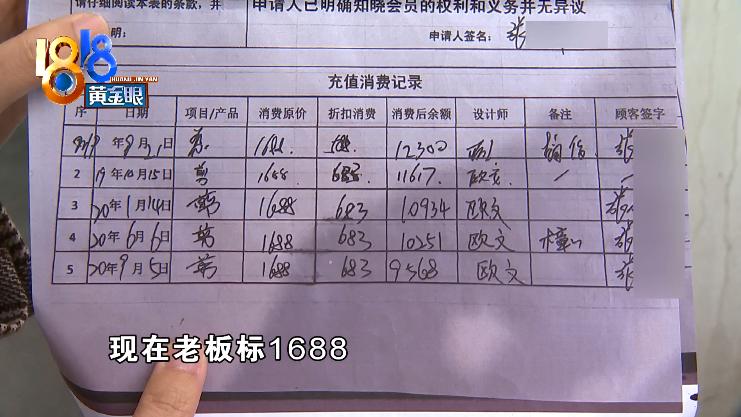 请仔细阅读本表的条款，并
申请人已明确知晓会员的权利和义务并无异议
明：
申请人签名：张
1818
HUANG JIN YAN
黄金眼
充值消费记录
序 日期 项目/产品 消费原价 折扣消费 消费后余额 设计师 备注 顾客签字
年9月21日 剪 12300 张
2 19年10月15日 剪 1688 683 11617 欧文
3 20年1月14日 剪 1688 683 10934 欧文 张
4 20年6月6日 剪 1688 683 10251 欧文 张
5 20年9月5日 剪 1688 683 9568 欧文 张
现在老板标1688